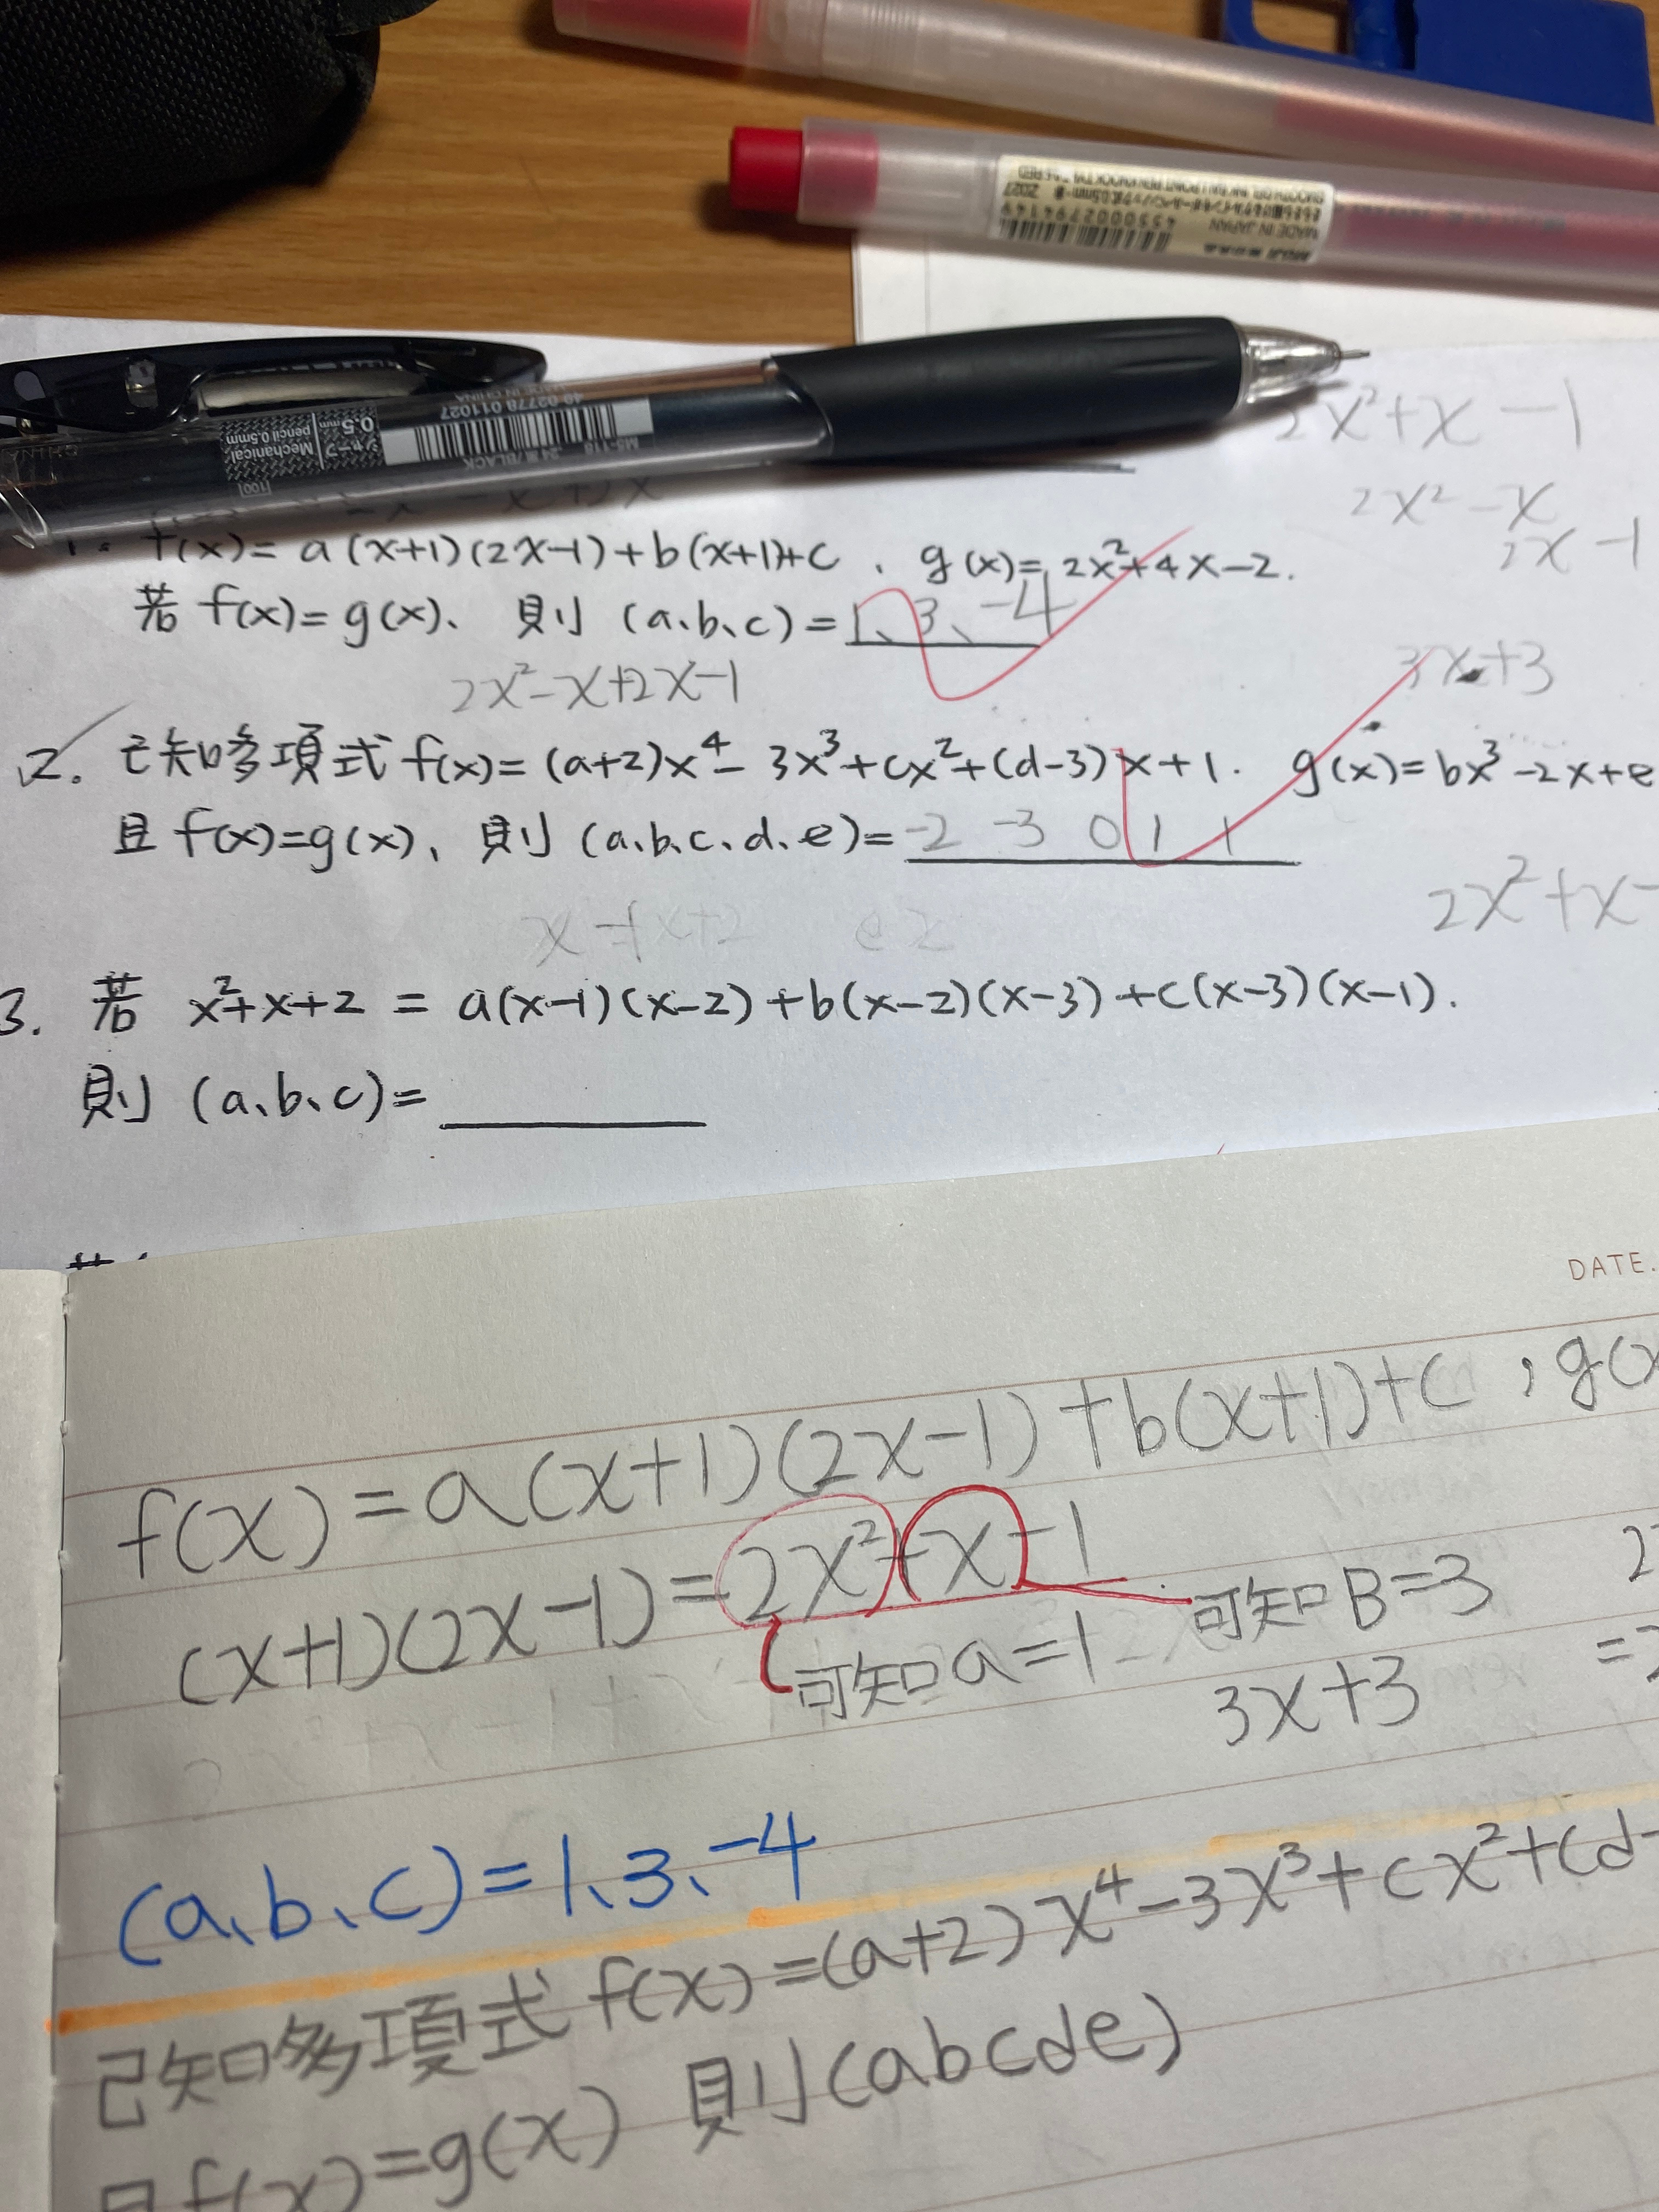 MADE IN JAPAN
4550002794149
2027
0.5mm
Mechanical
pencil 0.5mm
100
49 02778 011027
BLACK
2x²+x-1
2x²-x
2x-1
1. f(x)= a(x+1)(2x-1)+b(x+1)+c 、 g(x)= 2x²+4x-2.
若 f(x)= g(x)、 則 (a、b、c)= 1、3、-4
2x²-x+2x-1
3x+3
2. 已知多項式 f(x)= (a+2)x⁴- 3x³+cx²+(d-3)x+1. g(x)= bx³-2x+e
且 f(x)=g(x)、則 (a、b、c、d、e)= -2 -3 0 1 1
2x²+x-
3. 若 x²+x+2 = a(x-1)(x-2)+b(x-2)(x-3)+c(x-3)(x-1).
則 (a、b、c)=
DATE.
f(x)=a(x+1)(2x-1)+b(x+1)+c ,g(x
(x+1)(2x-1)=2x²+x-1
可知a=1 可知B=3
3x+3
(a、b、c)=1、3、-4
已知多項式 f(x)=(a+2)x⁴-3x³+cx²+(d-
且f(x)=g(x) 則(abcde)